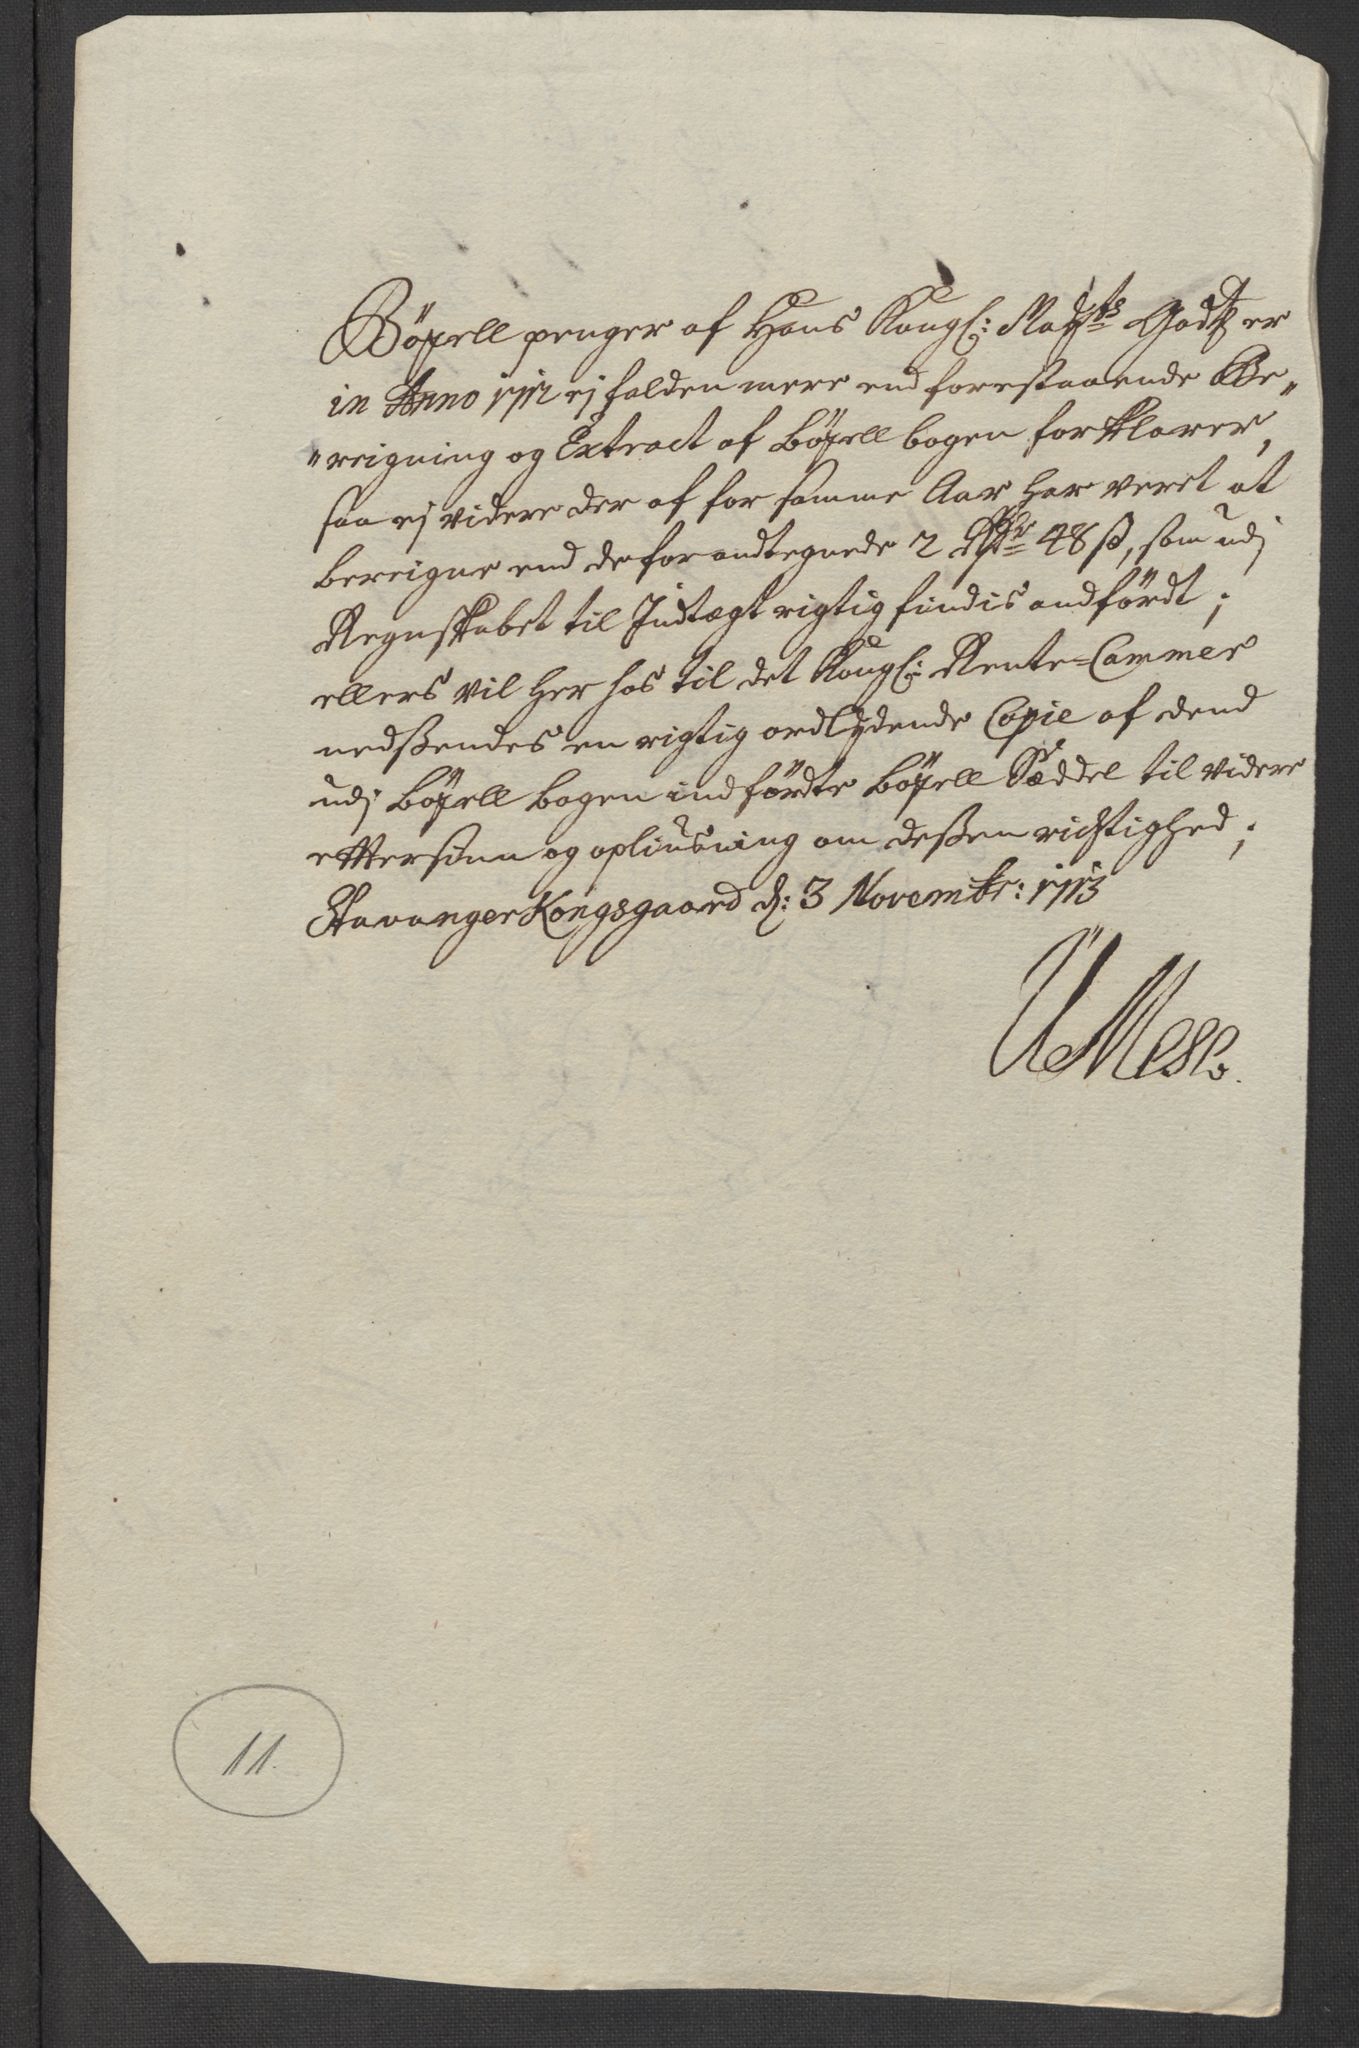 Böxell penger af Hans Kongl: Maÿts Godtz er
in Anno 1712 ej falden mere end forestaaende Be"
"reigning og Extract af böxell bogen forklarer,
saa ej videre der af for samme Aar har veret at
bereigne end de forandtegnede 2 Rdr 48 ß, som udj
Regnskabet til Indtægt rigtig findis andfördt;
ellers vil her hos til det Kongl: Rente-Cammer
nedßendes en rigtig ordlÿdende Copie af dend
udj böxell bogen indfördte böxell Sæddel til videre
efftersiun og opliusning om deßen richtighed;
Stavanger Kongsgaard d: 3 Novembr: 1713
11.